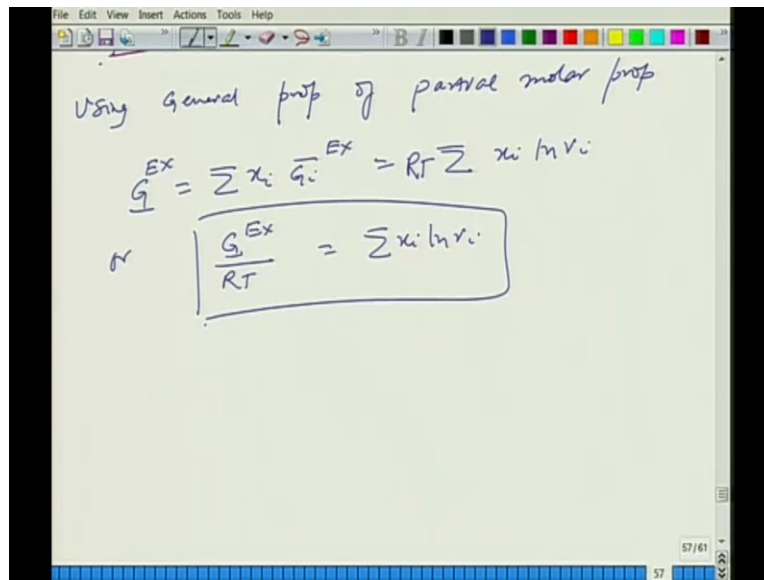 File Edit View Insert Actions Tools Help
B I
Using General prop of partial molar prop
G^Ex = Σ xi Ḡi^Ex = RT Σ xi ln γi
or G^Ex / RT = Σ xi ln γi
57/61
57